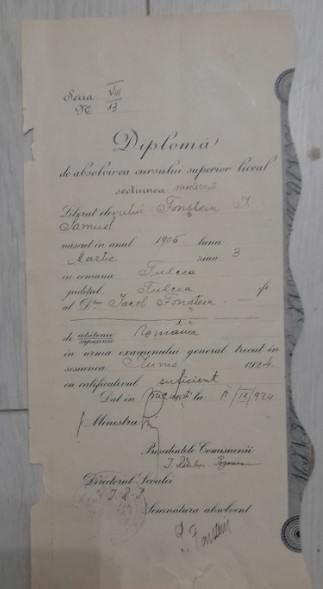 Seria VIII
№ 13
Diplomă
de absolvirea cursului superior liceal
secțiunea modernă
Liberat elevului Fonștein I.
Samuel
născut în anul 1906 luna
Martie ziua 3
în comuna Tulcea
județul Tulcea fiu
al D-lui Iacob Fonștein
de cetățenie română
supușenie
în urma examenului general trecut în
sesiunea Iunie 1924
cu calificativul suficient
Dat în București la 11/IX/924
Ministru
Președintele Comisiunii
Directorul Școalei
Semnătura absolvent